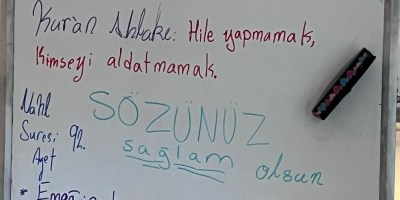 Kur'an Ahlakı: Hile yapmamak,
kimseyi aldatmamak.
Nahl
Suresi 92.
Ayet
SÖZÜNÜZ
sağlam olsun